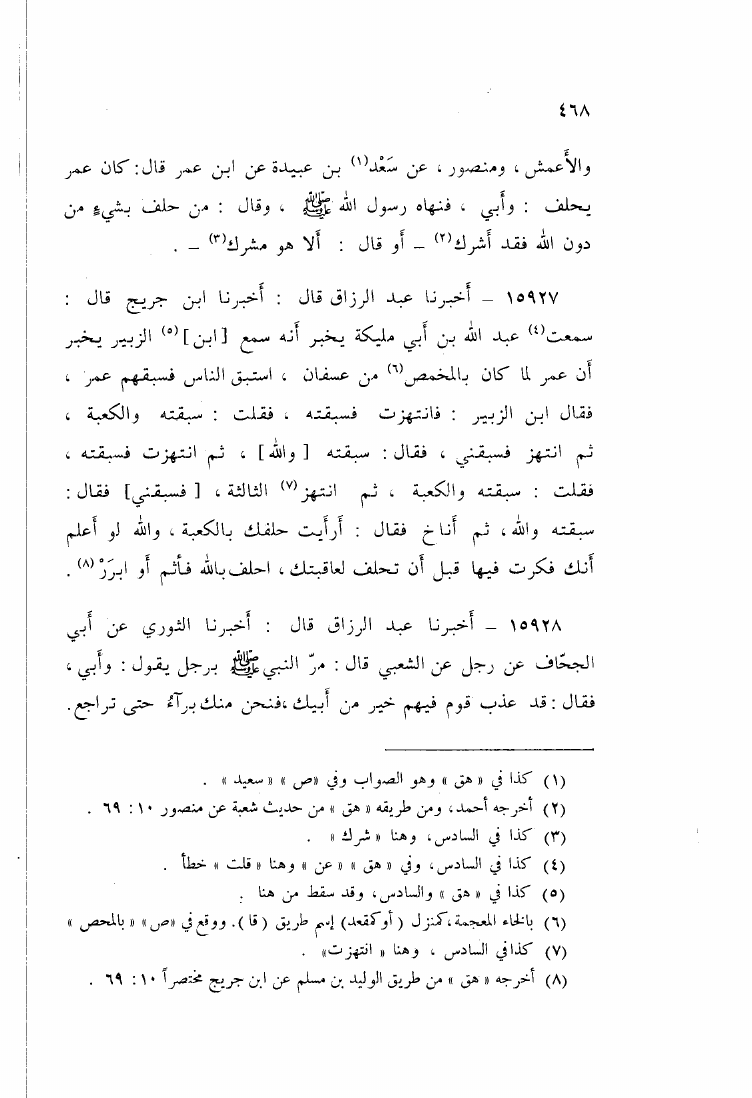 ٤٦٨
والأَعمش ، ومنصور ، عن سَعْد(١) بن عبيدة عن ابن عمر قال: كان عمر
يحلف : وأَبي ، فنهاه رسول الله ﷺ ، وقال : من حلف بشيءٍ من
دون الله فقد أَشرك(٢) – أَو قال : أَلا هو مشرك(٣) – .
١٥٩٢٧ – أَخبرنا عبد الرزاق قال : أَخبرنا ابن جريج قال :
سمعت(٤) عبد الله بن أَبي مليكة يخبر أَنه سمع [ابن](٥) الزبير يخبر
أَن عمر لما كان بالمخمص(٦) من عسفان ، استبق الناس فسبقهم عمر ،
فقال ابن الزبير : فانتهزت فسبقته ، فقلت : سبقته والكعبة ،
ثم انتهز فسبقني ، فقال : سبقته [والله] ، ثم انتهزت فسبقته ،
فقلت : سبقته والكعبة ، ثم انتهز(٧) الثالثة ، [فسبقني] فقال :
سبقته والله، ثم أَناخ فقال : أَرأَيت حلفك بالكعبة ، والله لو أَعلم
أَنك فكرت فيها قبل أَن تحلف لعاقبتك، احلف بالله فأْثم أَو ابرَرْ(٨) .
١٥٩٢٨ – أَخبرنا عبد الرزاق قال : أَخبرنا الثوري عن أَبي
الجحّاف عن رجل عن الشعبي قال : مرّ النبي ﷺ برجل يقول : وأَبي ،
فقال : قد عذب قوم فيهم خير من أَبيك ،فنحن منك برآءُ حتى تراجع.
(١) كذا في « هق » وهو الصواب وفي «ص » « سعيد » .
(٢) أخرجه أحمد، ومن طريقه « هق » من حديث شعبة عن منصور ١٠ : ٦٩ .
(٣) كذا في السادس، وهنا « شرك » .
(٤) كذا في السادس، وفي « هق » « عن » وهنا « قلت » خطأ .
(٥) كذا في « هق » والسادس، وقد سقط من هنا .
(٦) بالخاء المعجمة،كمنزل (أو كمقعد) إسم طريق (قا). ووقع في «ص» « بالمحص »
(٧) كذا في السادس ، وهنا « انتهزت» .
(٨) أخرجه « هق » من طريق الوليد بن مسلم عن ابن جريج مختصراً ١٠ : ٦٩ .